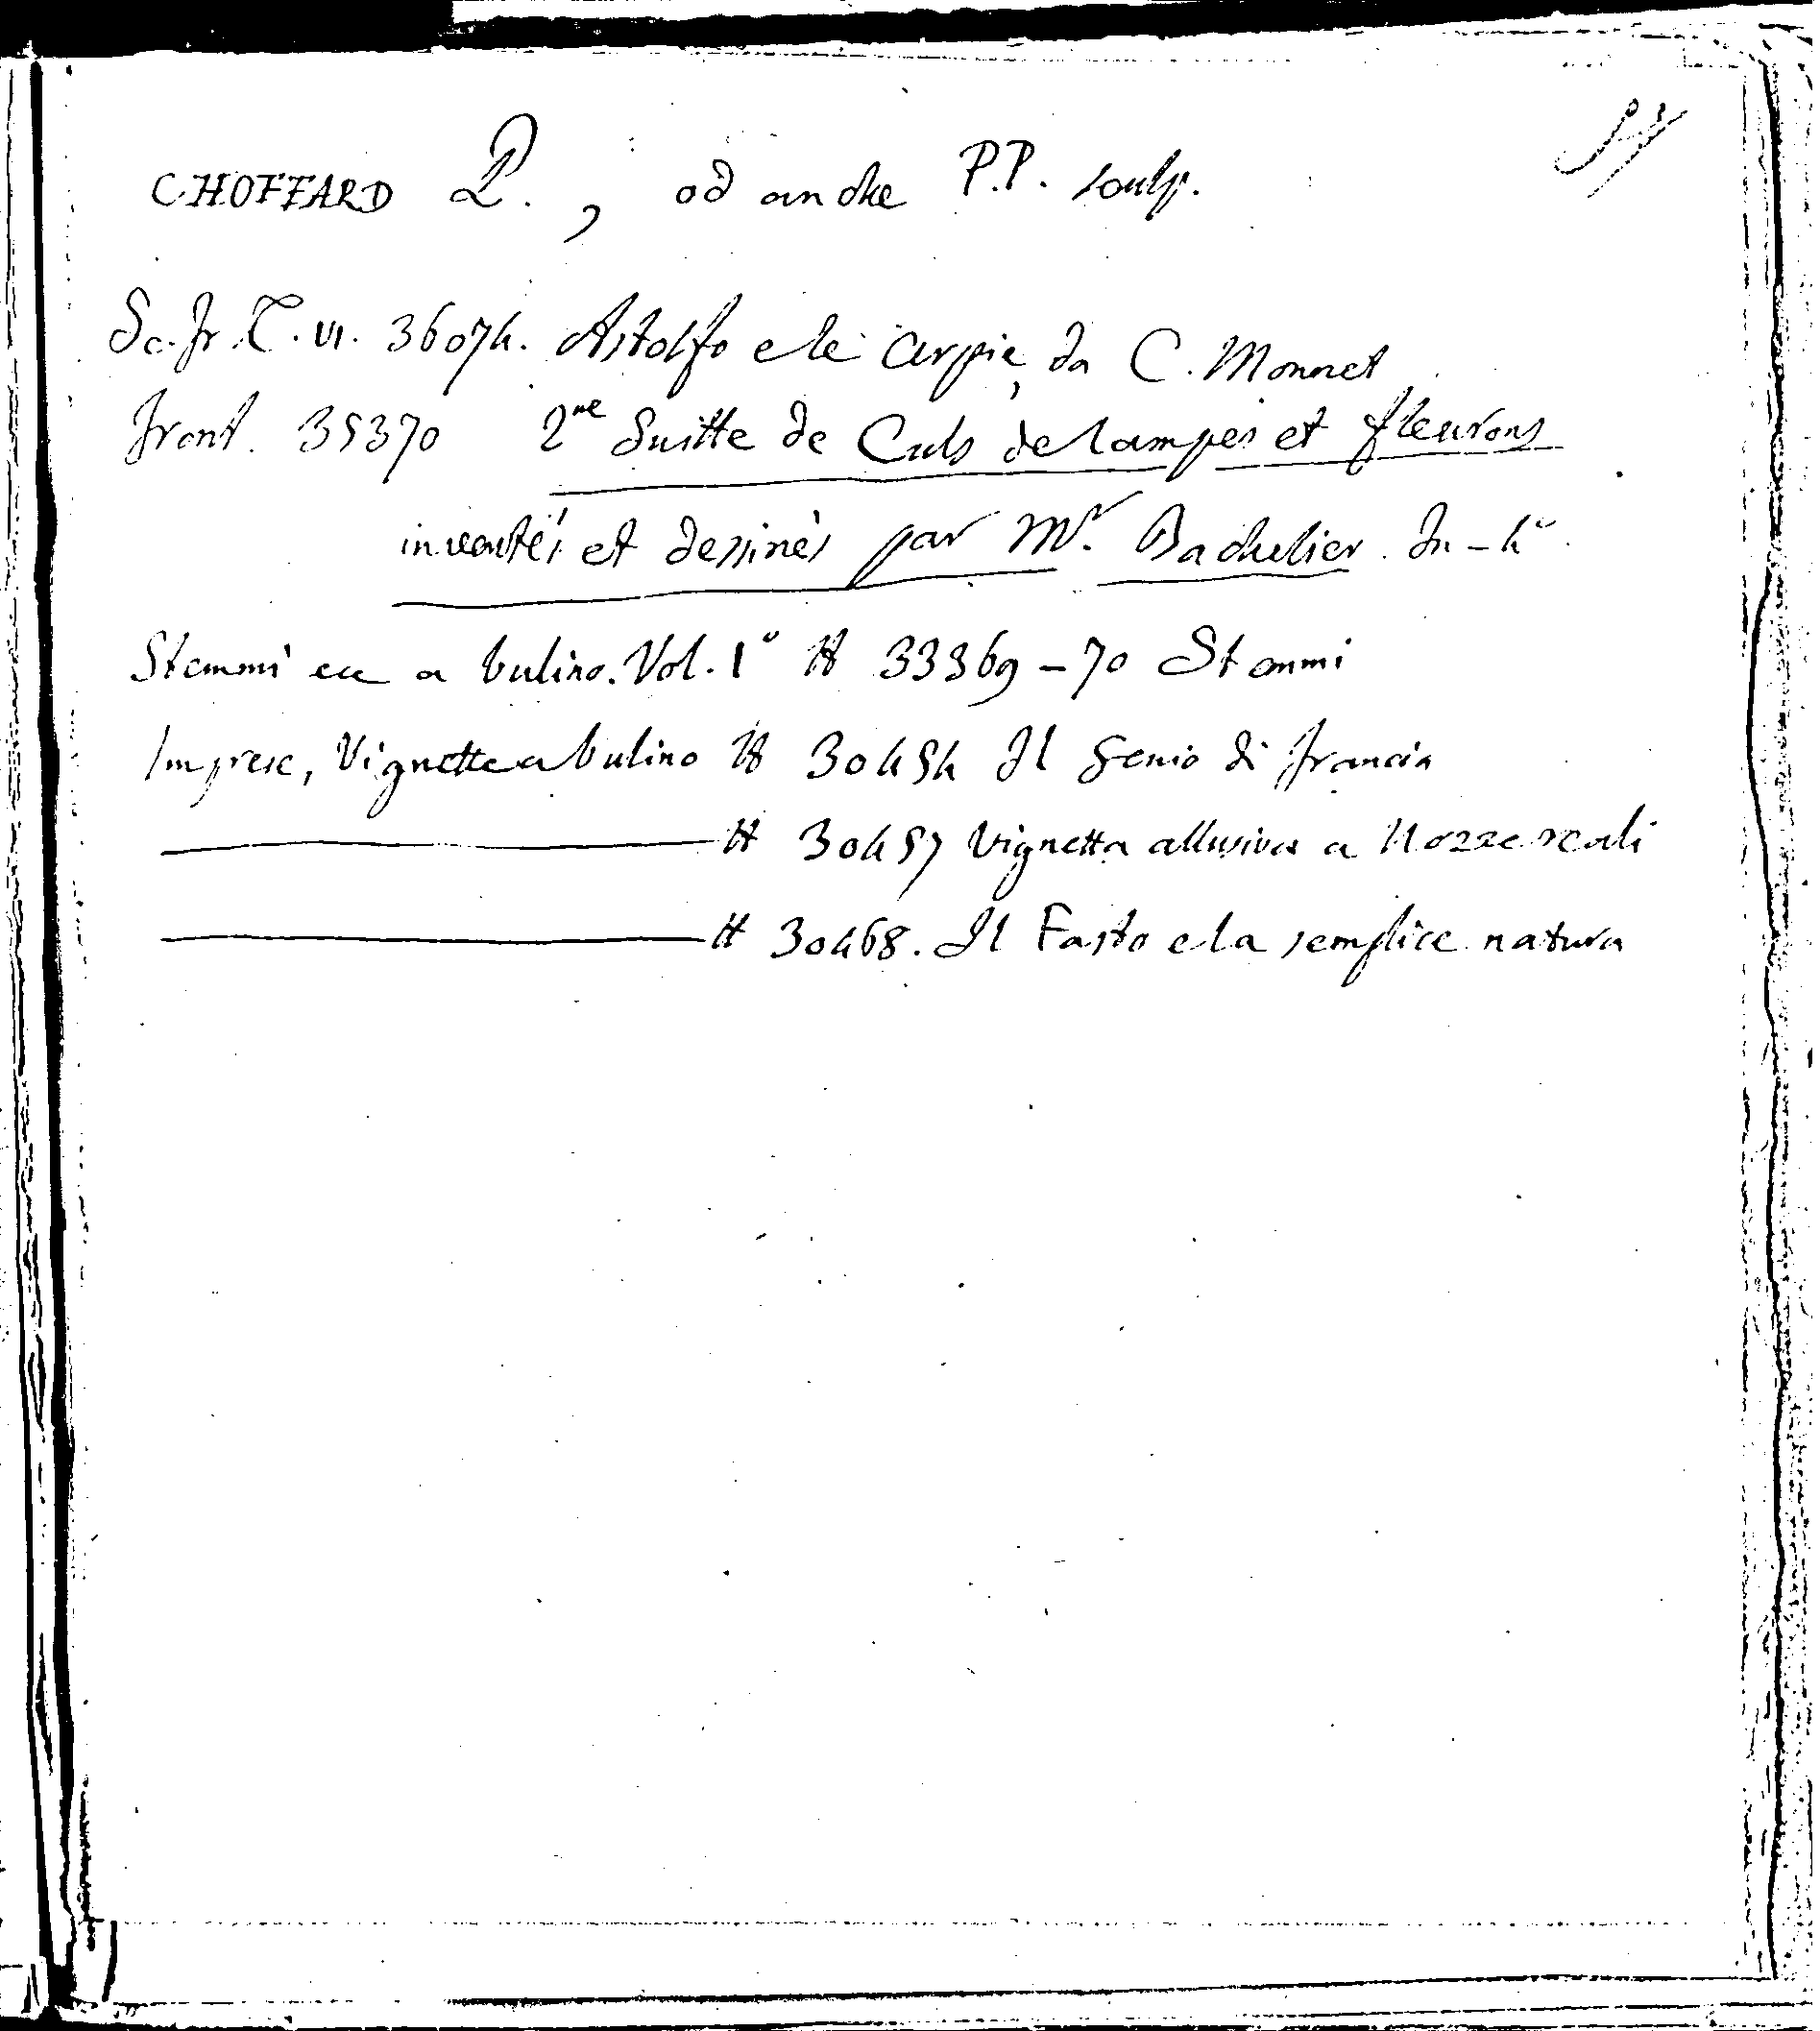 CHOFFARD P., od anche P.P. sculp.
Sc. fr. T. VI. 36074. Astolfo e le arpie, da C. Monnet
front. 35370 2me Suitte de Culs de lampes et fleurons
inventés et dessinés par Mr. Bachelier. In-4°
Stemmi ecc a bulino. Vol. 1° # 33369-70 Stemmi
Imprese, Vignette a bulino # 30454 Il Genio di francia
# 30457 Vignetta allusiva a Nozze reali
# 30468. Il Fasto e la semplice natura